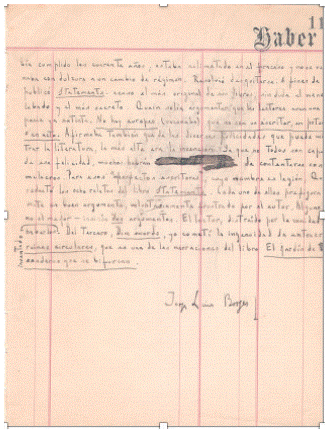 11
Haber
bía cumplido los cuarenta años; estaba aclimatado en el fracaso y no se re
naba con dulzura a un cambio de régimen. Resolvió desquitarse. A fines de
publicó Statements: acaso el más original de sus libros, sin duda el menos
labado y el más secreto. Quain solía argumentar que los lectores eran una
pecie ya extinta. No hay europeo (razonaba) que no sea un escritor, en poten
o en acto. Afirmaba también que de las diversas felicidades que puede mi
trar la literatura, la más alta era la invención. Ya que no todos son capa
de esa felicidad, muchos habrán de contentarse con
mulacros. Para esos "imperfectos escritores", cuyo nombre es legión, Qu
redactó los ocho relatos del libro Statements. Cada uno de ellos prefigura
mete un buen argumento, voluntariamente frustrado por el autor. Alguno
no el mejor - insinúa dos argumentos. El lector, distraído por la vanidad
inventado
haberlos. Del tercero, yo cometí la ingenuidad de extraer
ruinas circulares, que es una de las narraciones del libro El jardín de
senderos que se bifurcan.
Jorge Luis Borges